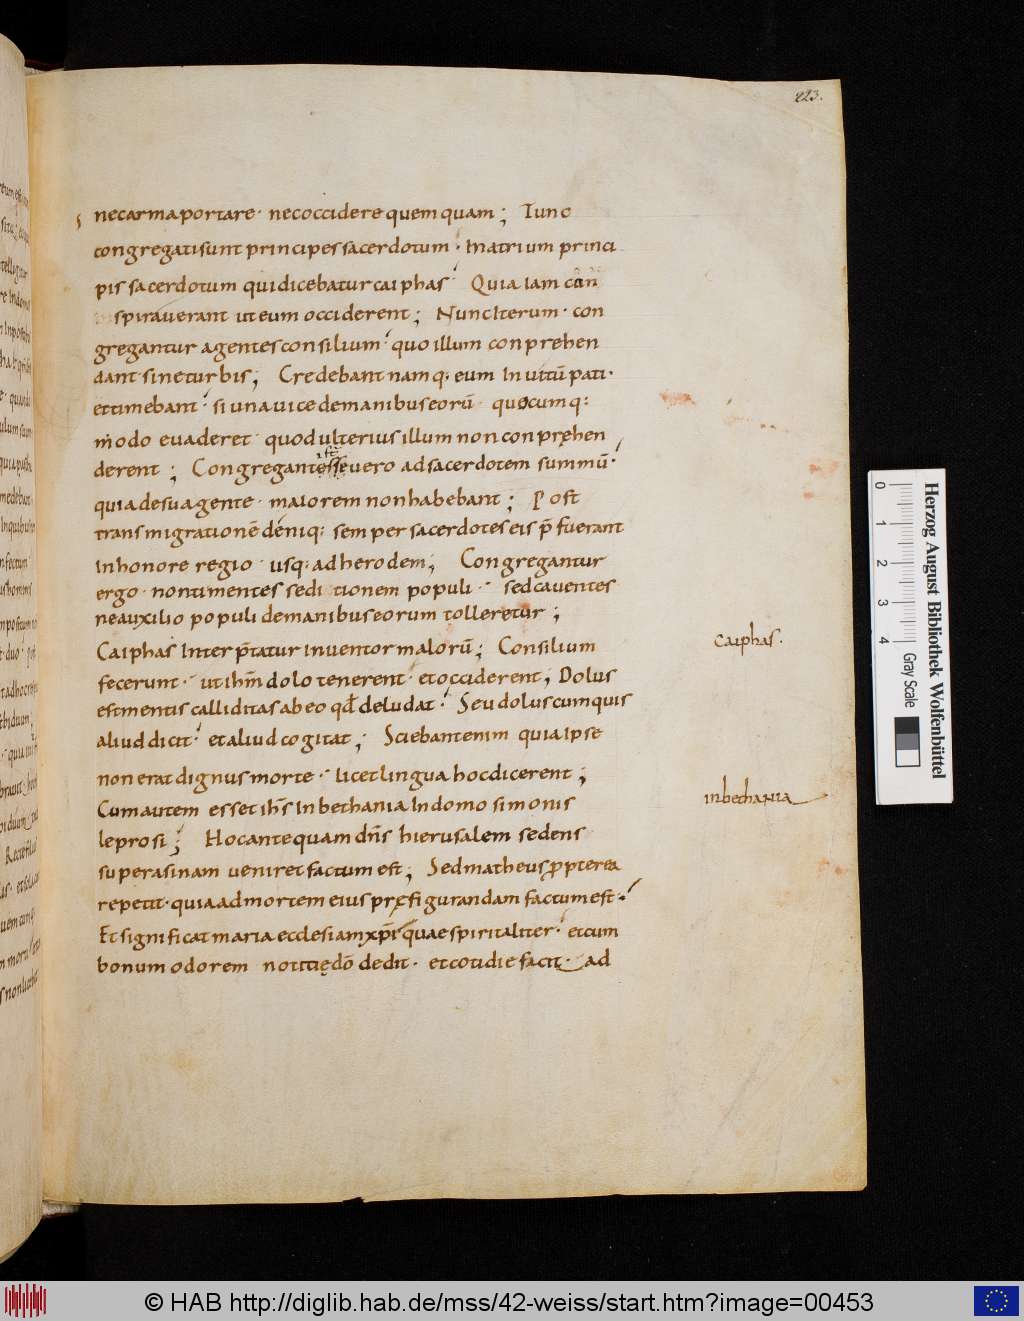 223.
necarmaportare· necoccidere quem quam; Tunc
congregatisunt principessacerdotum· Inatrium princi
pis sacerdotum quidicebatur caiphas Quia iam con
spiraverant uteum occiderent; NuncIterum· con
gregantur agentesconsilium· quo illum conprẹhen
dant sineturbis; Credebant namq: eum In uitū pati·
ettimebant· siunauice demanibuseorū quocumq:
modo evaderet· quodulterius illum non conprẹhen
derent; Congregant esse uero adsacerdotem summū·
quiadesuagente· maiorem nonhabebant; Post
transmigrationē deniq: semper sacerdotes eis p̄fuerant
inhonore regio· usq: adherodem; Congregantur
ergo· nontimentes seditionem populi· sedcaventes
neauxilio populi demanibuseorum tolleretur;
Caiphas Interp̄tatur inventor malorū; Consilium
fecerunt· ut ihm̄ dolo tenerent· etocciderent; Dolus
estmentis calliditas abeo qd̄ deludat· Seu dolus cumquis
aliud dicit· etaliud cogitat; Sciebantenim quia ipse
non erat dignus morte· licet lingua hocdicerent;
Cumautem esset ihs̄ In bethania Indomo simonis
leprosi; Hocantequam dn̄s hierusalem sedens
superasinam ueniret factum est; Sedmatheus ꝓpterea
repetit· quia admortem eius prẹfigurandam factum est·
Et significat maria ecclesiam xp̄i quae spiritaliter· etcum
bonum odorem notitię dō dedit· etcotidie facit· ad
caiphas·
inbethania
0 1 2 3 4
Gray Scale
Herzog August Bibliothek Wolfenbüttel
© HAB http://diglib.hab.de/mss/42-weiss/start.htm?image=00453